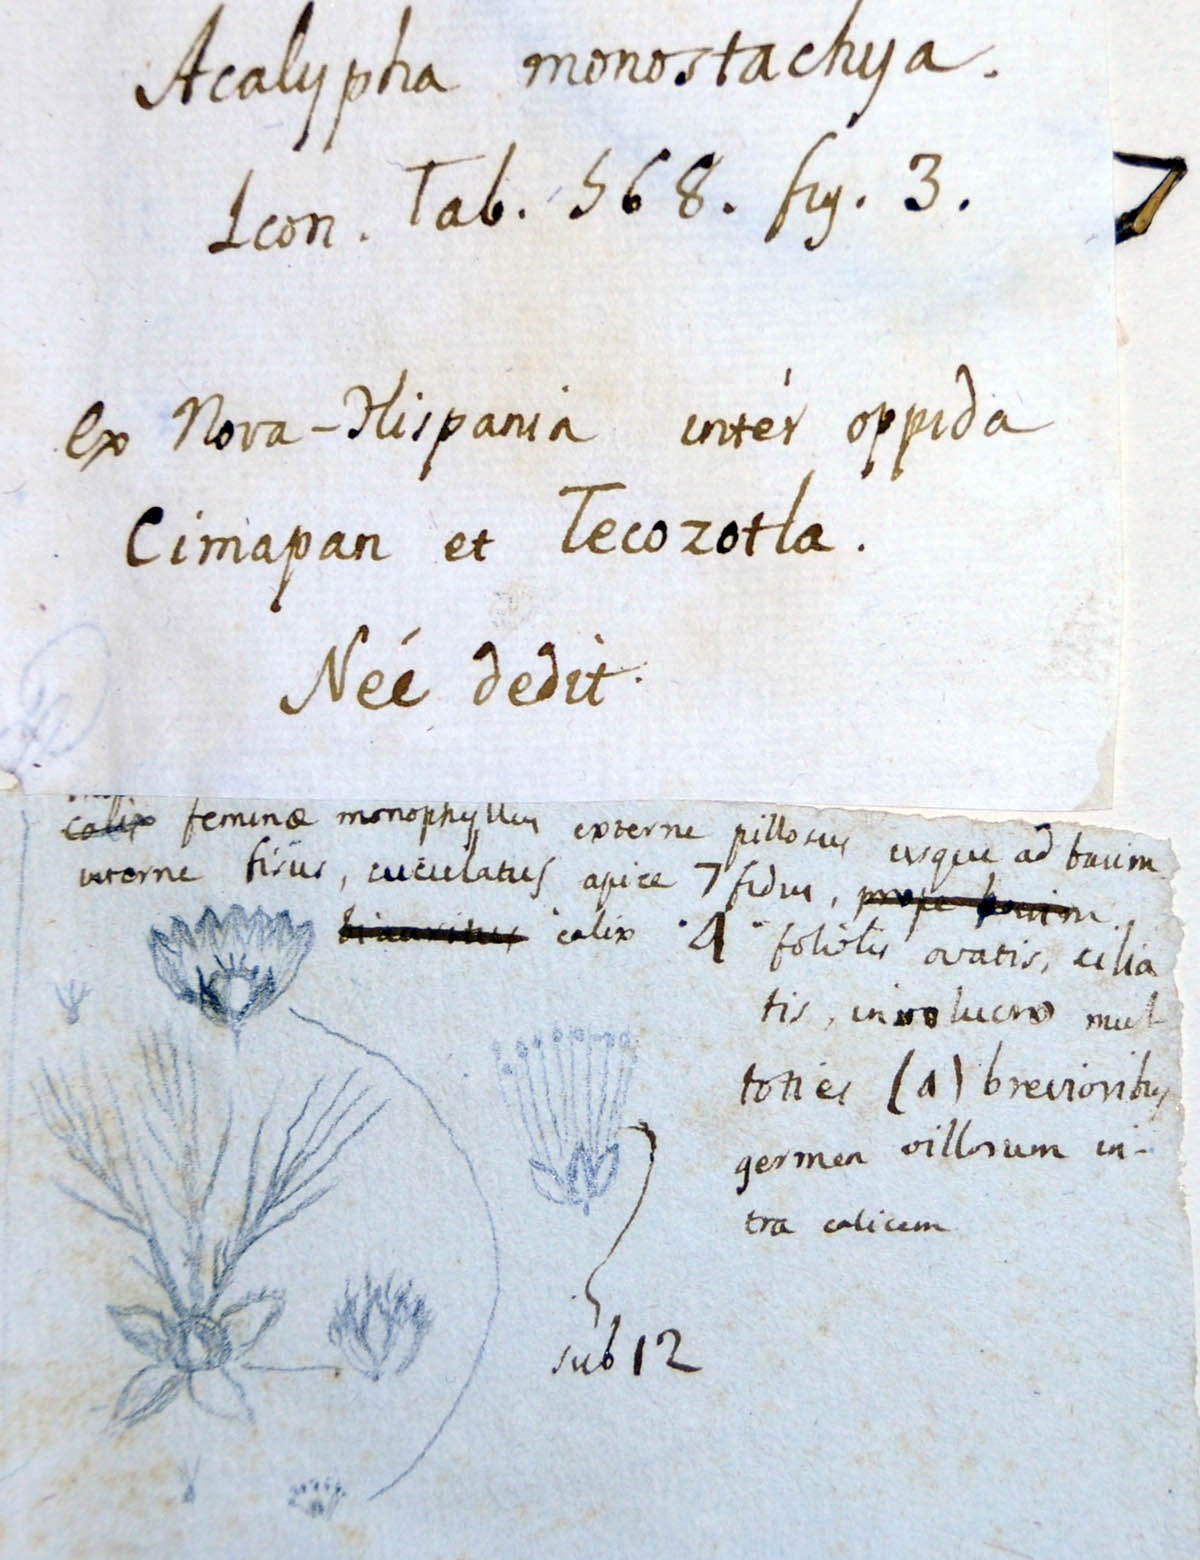 Acalypha monostachya.
Icon. Tab. 568. fig. 3.
7
Ex Nova-Hispania inter oppida
Cimapan et Tecozotla.
Née dedit.
calix feminæ monophyllus externe pillosus usque ad basim
interne fisus, cuculatus apice 7 fidus, prope basim
calix 4 foliolis ovatis, cilia
tis, involucro mul
toties (a) brevioribus
germen villosum in-
tra calicem
sub 12